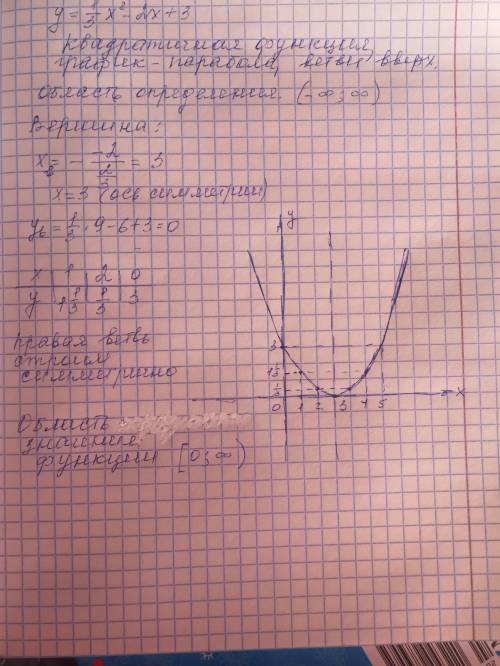 y = 1/3 x² - 2x + 3
Квадратичная функция,
график - парабола, ветви вверх.
Область определения (-∞; ∞)
Вершина:
x_в = - -2 / (2/3) = 3
x = 3 (ось симметрии)
y_в = 1/3 · 9 - 6 + 3 = 0
x 1 2 0
y 1 1/3 1/3 3
Правая ветвь
строим
симметрично
Область
значений
функции [0; ∞)
y
3
1 1/3
1/3
0 1 2 3 4 5 x